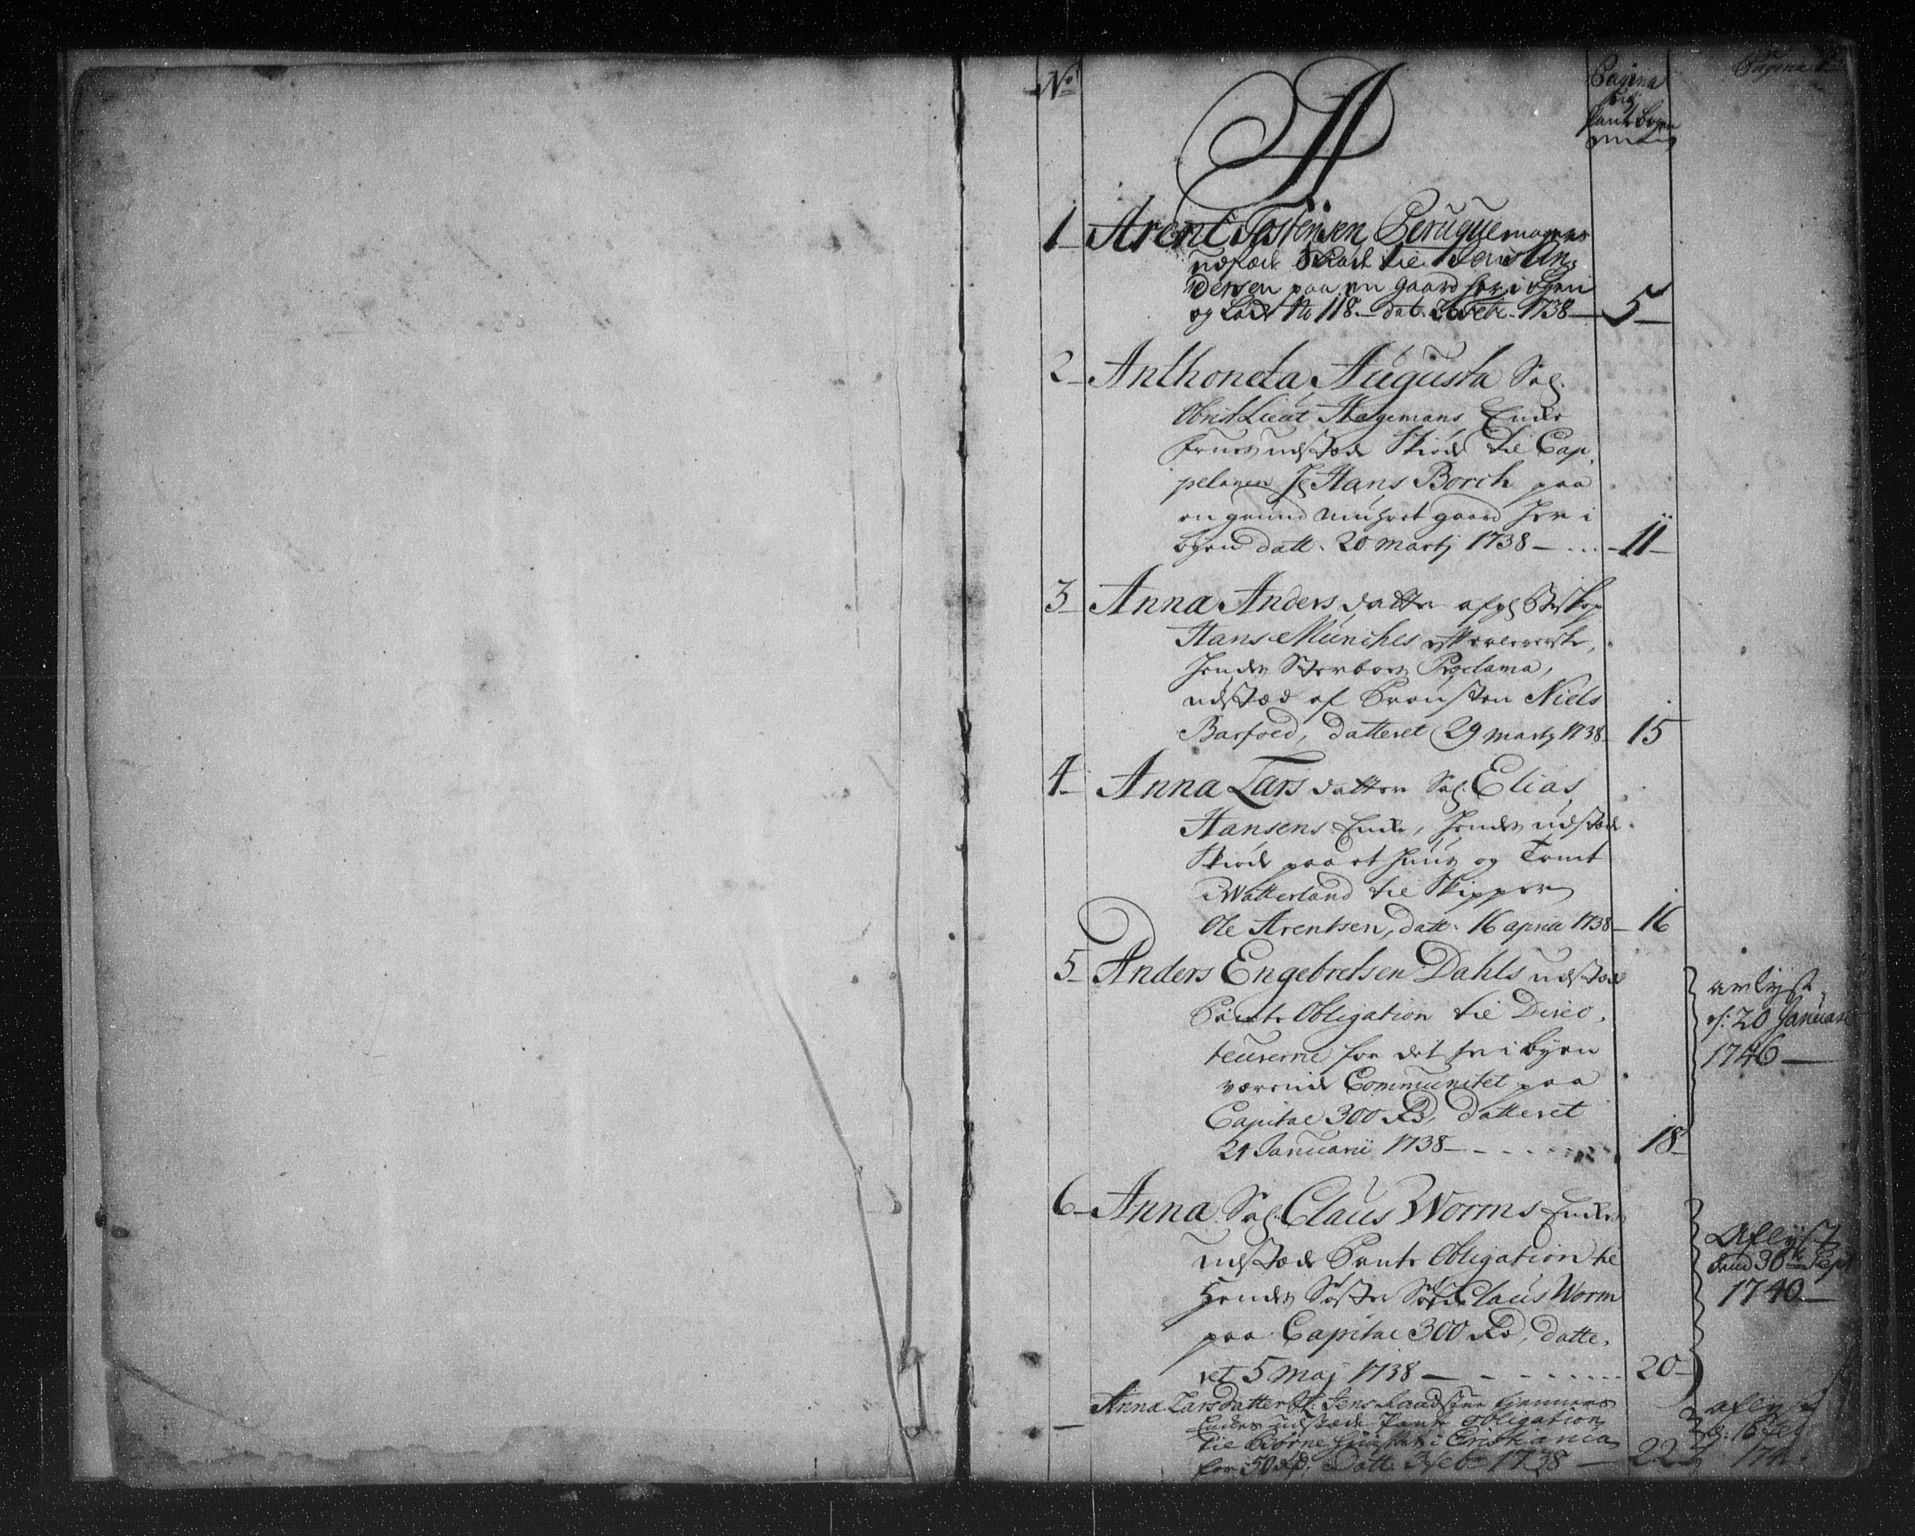 No
Pagina
Pagina
A
1 Arent Tostensen Peruquemagers
udstæd Skiøde til Jens An-
dersen paa en gaard her i byen
og Lod No 118. dat. 26 Febr. 1738 5
2 Anthoneta Augusta Sal.
Obrist Lieut Hagemans Enke
Frues udstæde Skiøde til Cap-
pelanen Hr Hans Borch paa
en grund muhret gaard her i
byen datt. 20 Martj 1738 11
3 Anna Anders datter afg. Biskop
Hans Münches efterleverske,
hendes Sterboes Proclama,
udstæd af Byens Niels
Barfoed, datteret 29 Martj 1738 15
4 Anna Lars datter Sal. Elias
Hansens Enke, hendes udstæde
Skiøde paa et huus og Tomt
i Watterland til Skipper
Ole Arentsen, datt. 16 april 1738 16
5 Anders Engebretsen Dahls udstæde
Pante Obligation til Direc-
teurerne for det her i byen
værende Communitet paa
Capital 300 Rd, datteret
21 Januarii 1738 18
avlyst
d: 20 Januarii
1746
6 Anna Sal. Claus Worms Enkes
udstæde Pante Obligation til
Hendes Søster Claus Worm
paa Capital 300 Rd, datte-
ret 5 Maj 1738 20
Aflyst
dend 30te Sept
1740
Anna Larsdatter Sl. Jens
Enkes udstæde Pante Obligation
til Børnehuuset i Cristiania
for 50 Rd. Datt. 3 Feb 1738 22
aflyst
d. 16 Feb